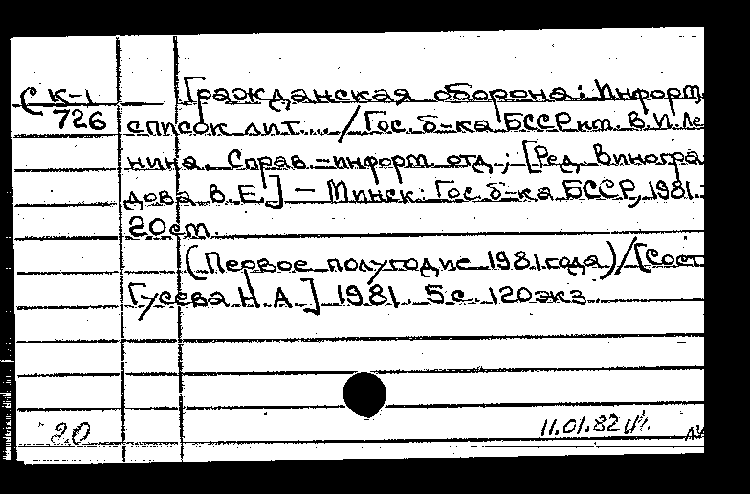 Ск-1 Гражданская оборона: Информ.
726 список лит... / Гос. б-ка БССР им. В.И. Ле
нина. Справ.-информ. отд.; [Ред. Виногра
дова В.Е.] – Минск: Гос. б-ка БССР, 1981.-
20см.
(Первое полугодие 1981 года) / [Сост.
Гусева Н.А.] 1981. 5с. 120экз.
20 11.01.82